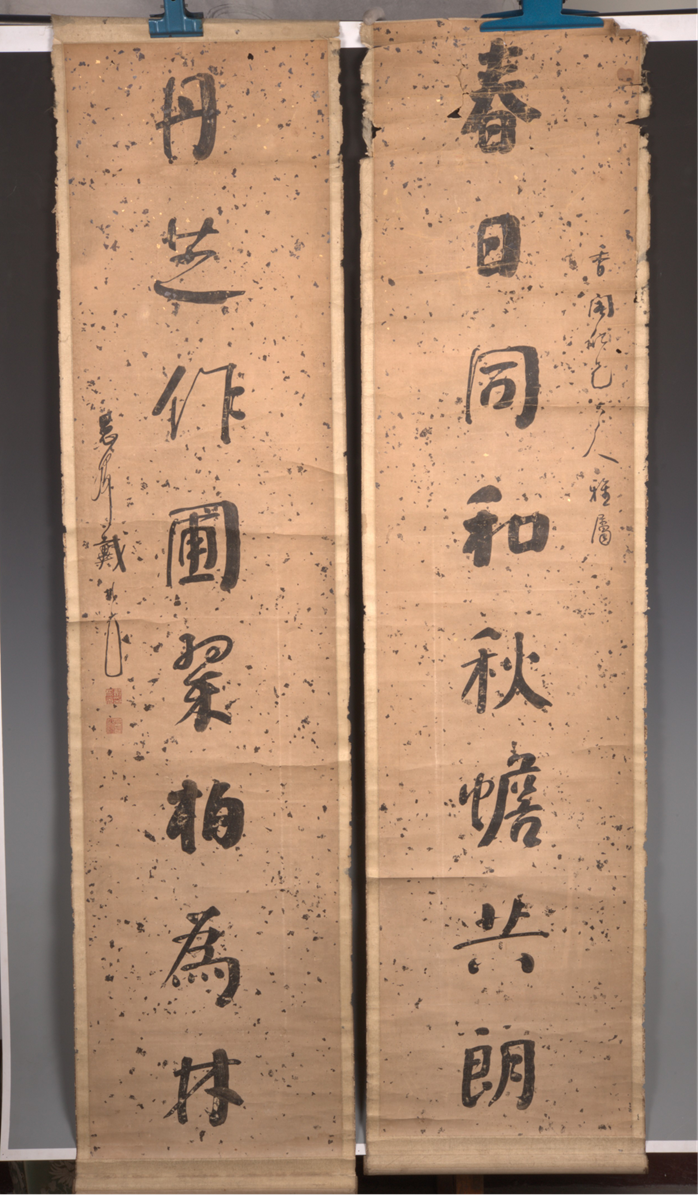 香閣仁兄大人雅屬
春日同和秋蟾共朗
丹芝作圃翠柏為林
戴